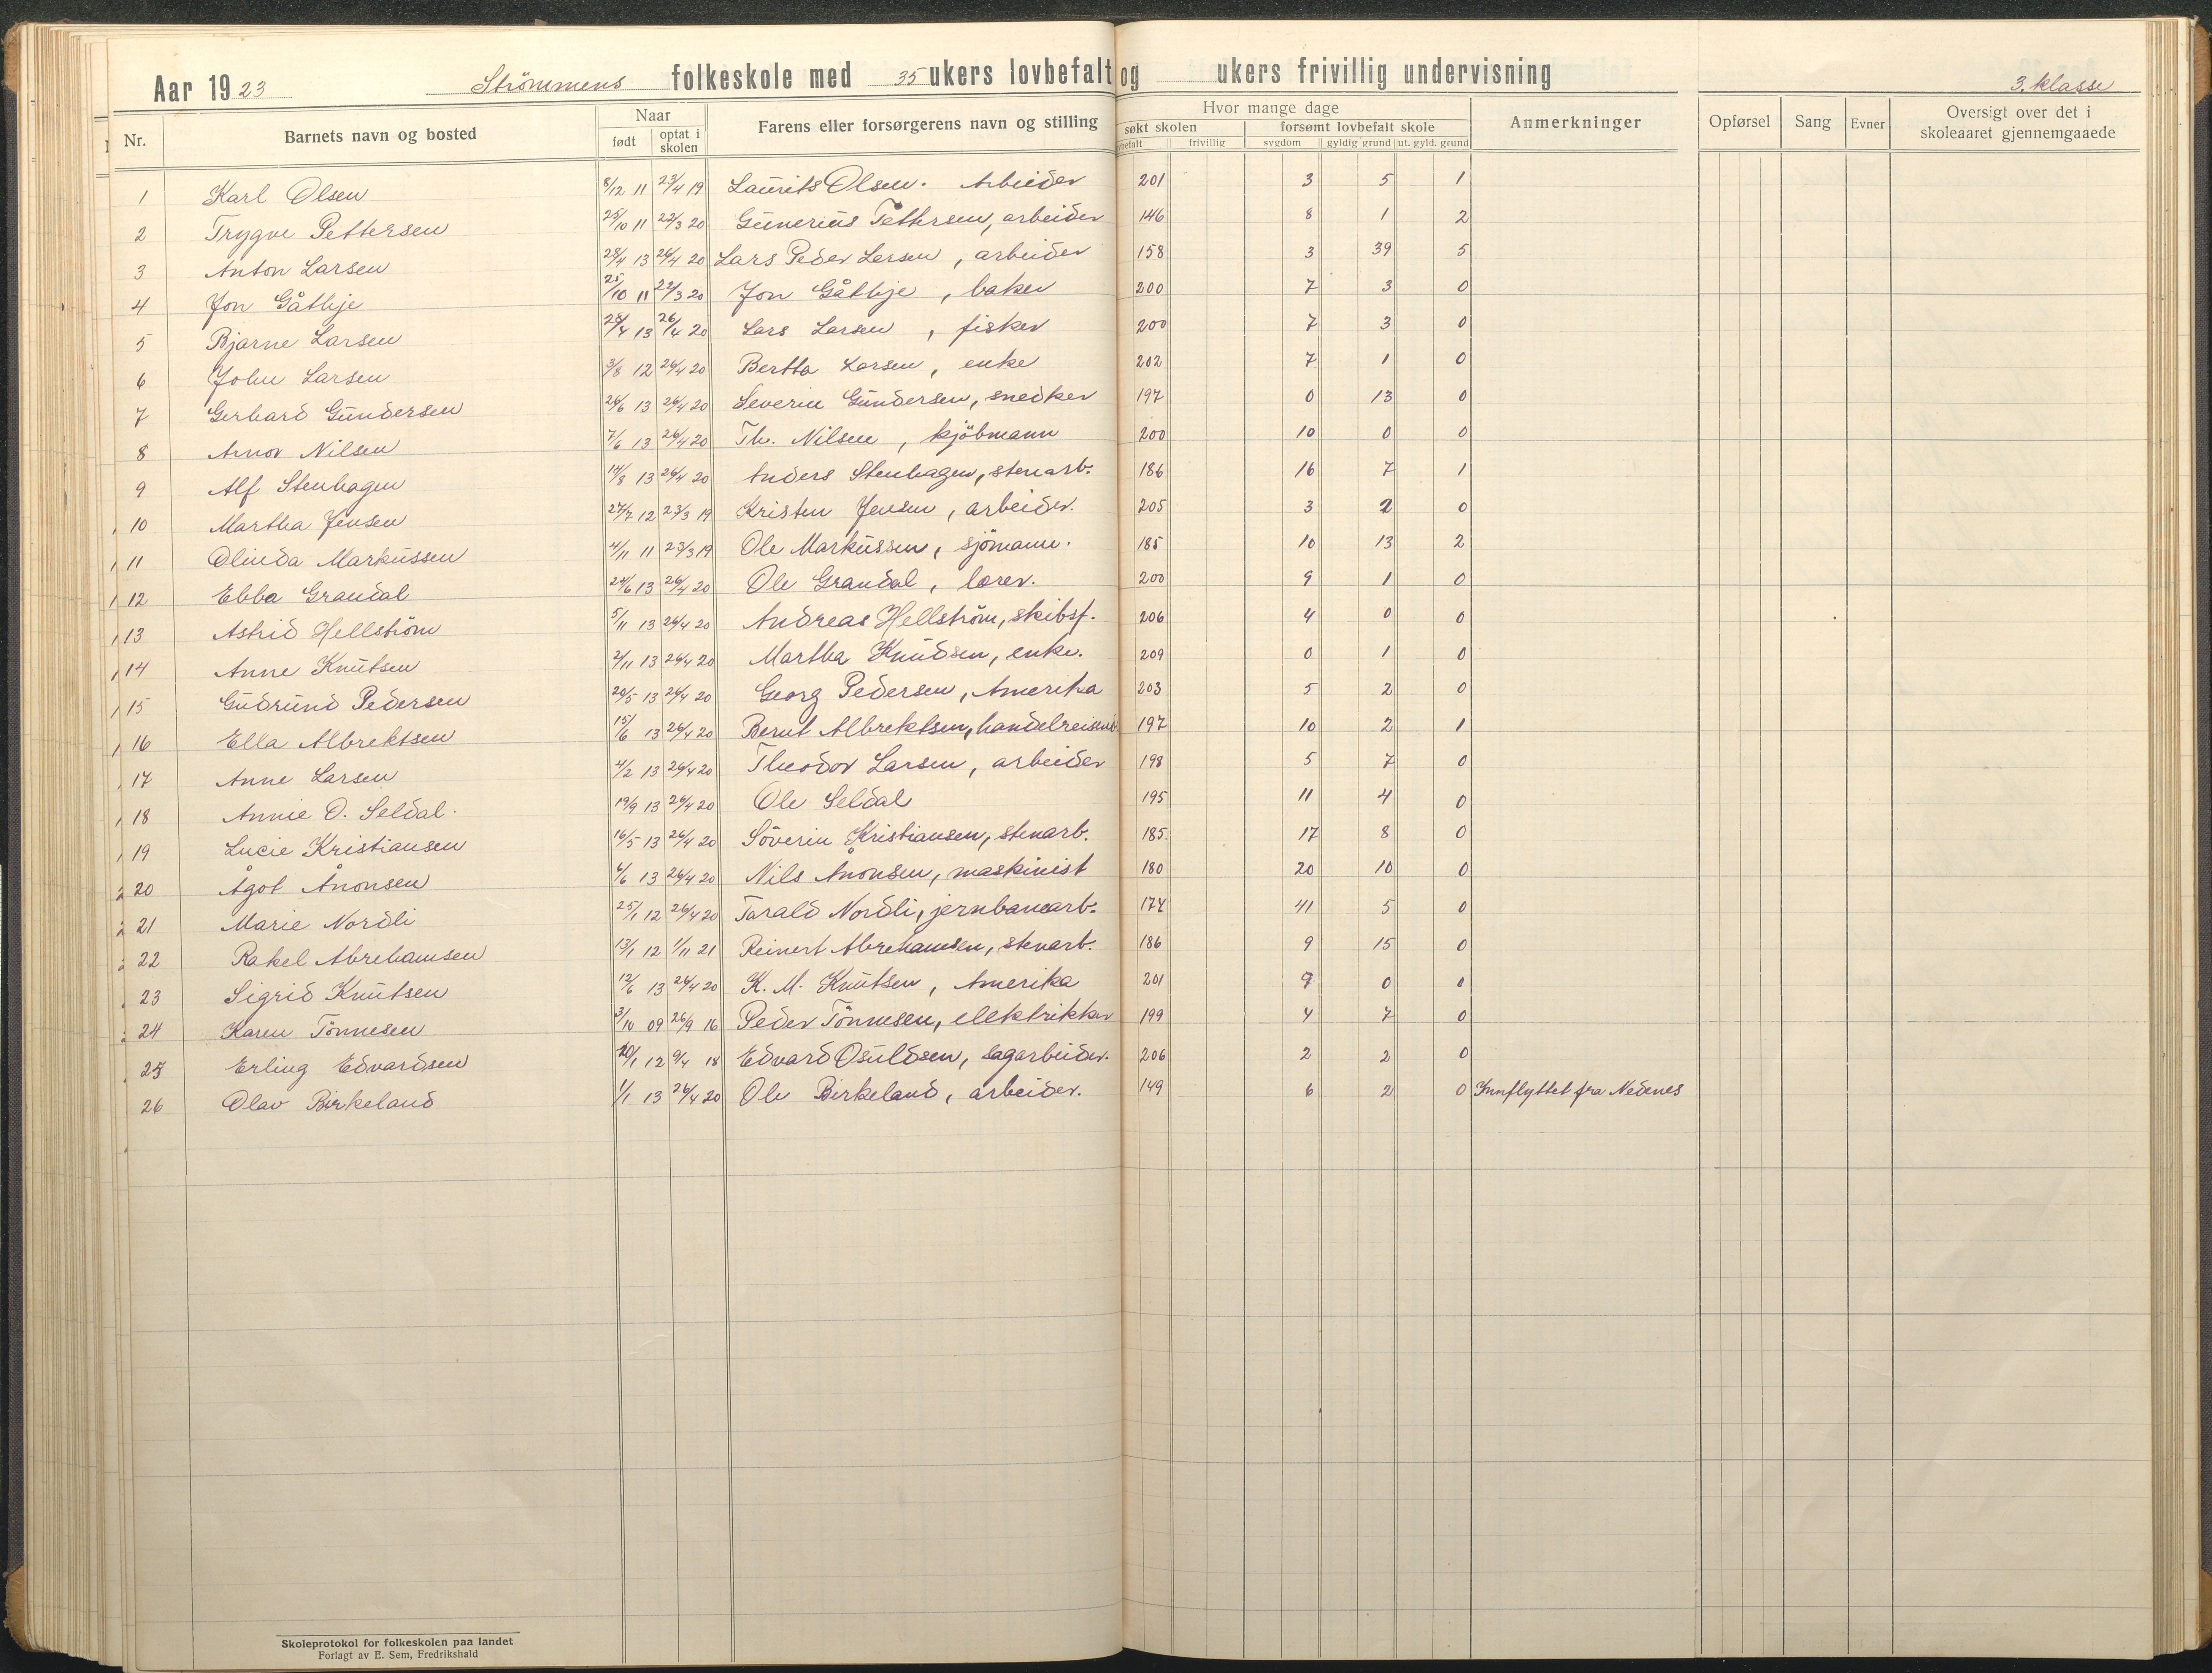 Aar 1923 Strömmens folkeskole med 35 ukers lovbefalt og ukers frivillig undervisning 3. klasse
Nr. Barnets navn og bosted Naar født optat i skolen Farens eller forsørgerens navn og stilling Hvor mange dage søkt skolen frivillig forsømt lovbefalt skole sygdom gyldig grund ut. gyld. grund Anmerkninger Opførsel Sang Evner Oversigt over det i skoleaaret gjennemgaaede
1 Karl Olsen 8/12 11 23/4 19 Laurits Olsen. Arbeider 201 3 5 1
2 Trygve Pettersen 25/10 11 22/3 20 Gunerius Pettersen, arbeider 146 8 1 2
3 Anton Larsen 28/4 13 26/4 20 Lars Peder Larsen, arbeider 158 3 39 5
4 Jon Gåthje 25/10 11 22/3 20 Jon Gåthje, baker 200 7 3 0
5 Bjarne Larsen 28/4 13 26/4 20 Lars Larsen, fisker 200 7 3 0
6 John Larsen 3/8 12 26/4 20 Bertha Larsen, enke 202 7 1 0
7 Gerhard Gundersen 26/6 13 26/4 20 Severin Gundersen, snedker 197 0 13 0
8 Arnor Nilsen 7/6 13 26/4 20 Th. Nilsen, kjöbmann 200 10 0 0
9 Alf Stenhagen 14/8 13 26/4 20 Anders Stenhagen, stenarb. 186 16 7 1
10 Martha Jensen 27/7 12 23/3 19 Kristen Jensen, arbeider. 205 3 2 0
11 Olinda Markussen 4/11 11 23/3 19 Ole Markussen, sjömann. 185 10 13 2
12 Ebba Grandal 24/6 13 26/4 20 Ole Grandal, lærer. 200 9 1 0
13 Astrid Hellström 5/11 13 26/4 20 Andreas Hellström, skibsf. 206 4 0 0
14 Anne Knutsen 2/11 13 26/4 20 Martha Knudsen, enke. 209 0 1 0
15 Gudrund Pedersen 20/5 13 26/4 20 Georg Pedersen, Amerika 203 5 2 0
16 Ella Albrektsen 15/6 13 26/4 20 Bernt Albrektsen, handelreisend 197 10 2 1
17 Anne Larsen 4/2 13 26/4 20 Theodor Larsen, arbeider 198 5 7 0
18 Annie O. Seldal. 19/9 13 26/4 20 Ole Seldal 195 11 4 0
19 Lucie Kristiansen 16/5 13 26/4 20 Söverin Kristiansen, stenarb. 185 17 8 0
20 Ågot Ånonsen 4/6 13 26/4 20 Nils Ånonsen, maskinist 180 20 10 0
21 Marie Nordli 25/1 12 26/4 20 Tarald Nordli, jernbanearb. 174 41 5 0
22 Rakel Abrehamsen 13/1 12 1/11 21 Reinert Abrehamsen, stenarb. 186 9 15 0
23 Sigrid Knutsen 12/6 13 26/4 20 K. M. Knutsen, Amerika 201 9 0 0
24 Karen Tönnesen 3/10 09 26/9 16 Peder Tönnesen, elektrikker 199 4 7 0
25 Erling Edvardsen 20/1 12 9/4 18 Edvard Osuldsen, sagarbeider. 206 2 2 0
26 Olav Birkeland 1/1 13 26/4 20 Ole Birkeland, arbeider. 149 6 2 0 Innflyttet fra Nedenes
Skoleprotokol for folkeskolen paa landet
Forlagt av E. Sem, Fredrikshald